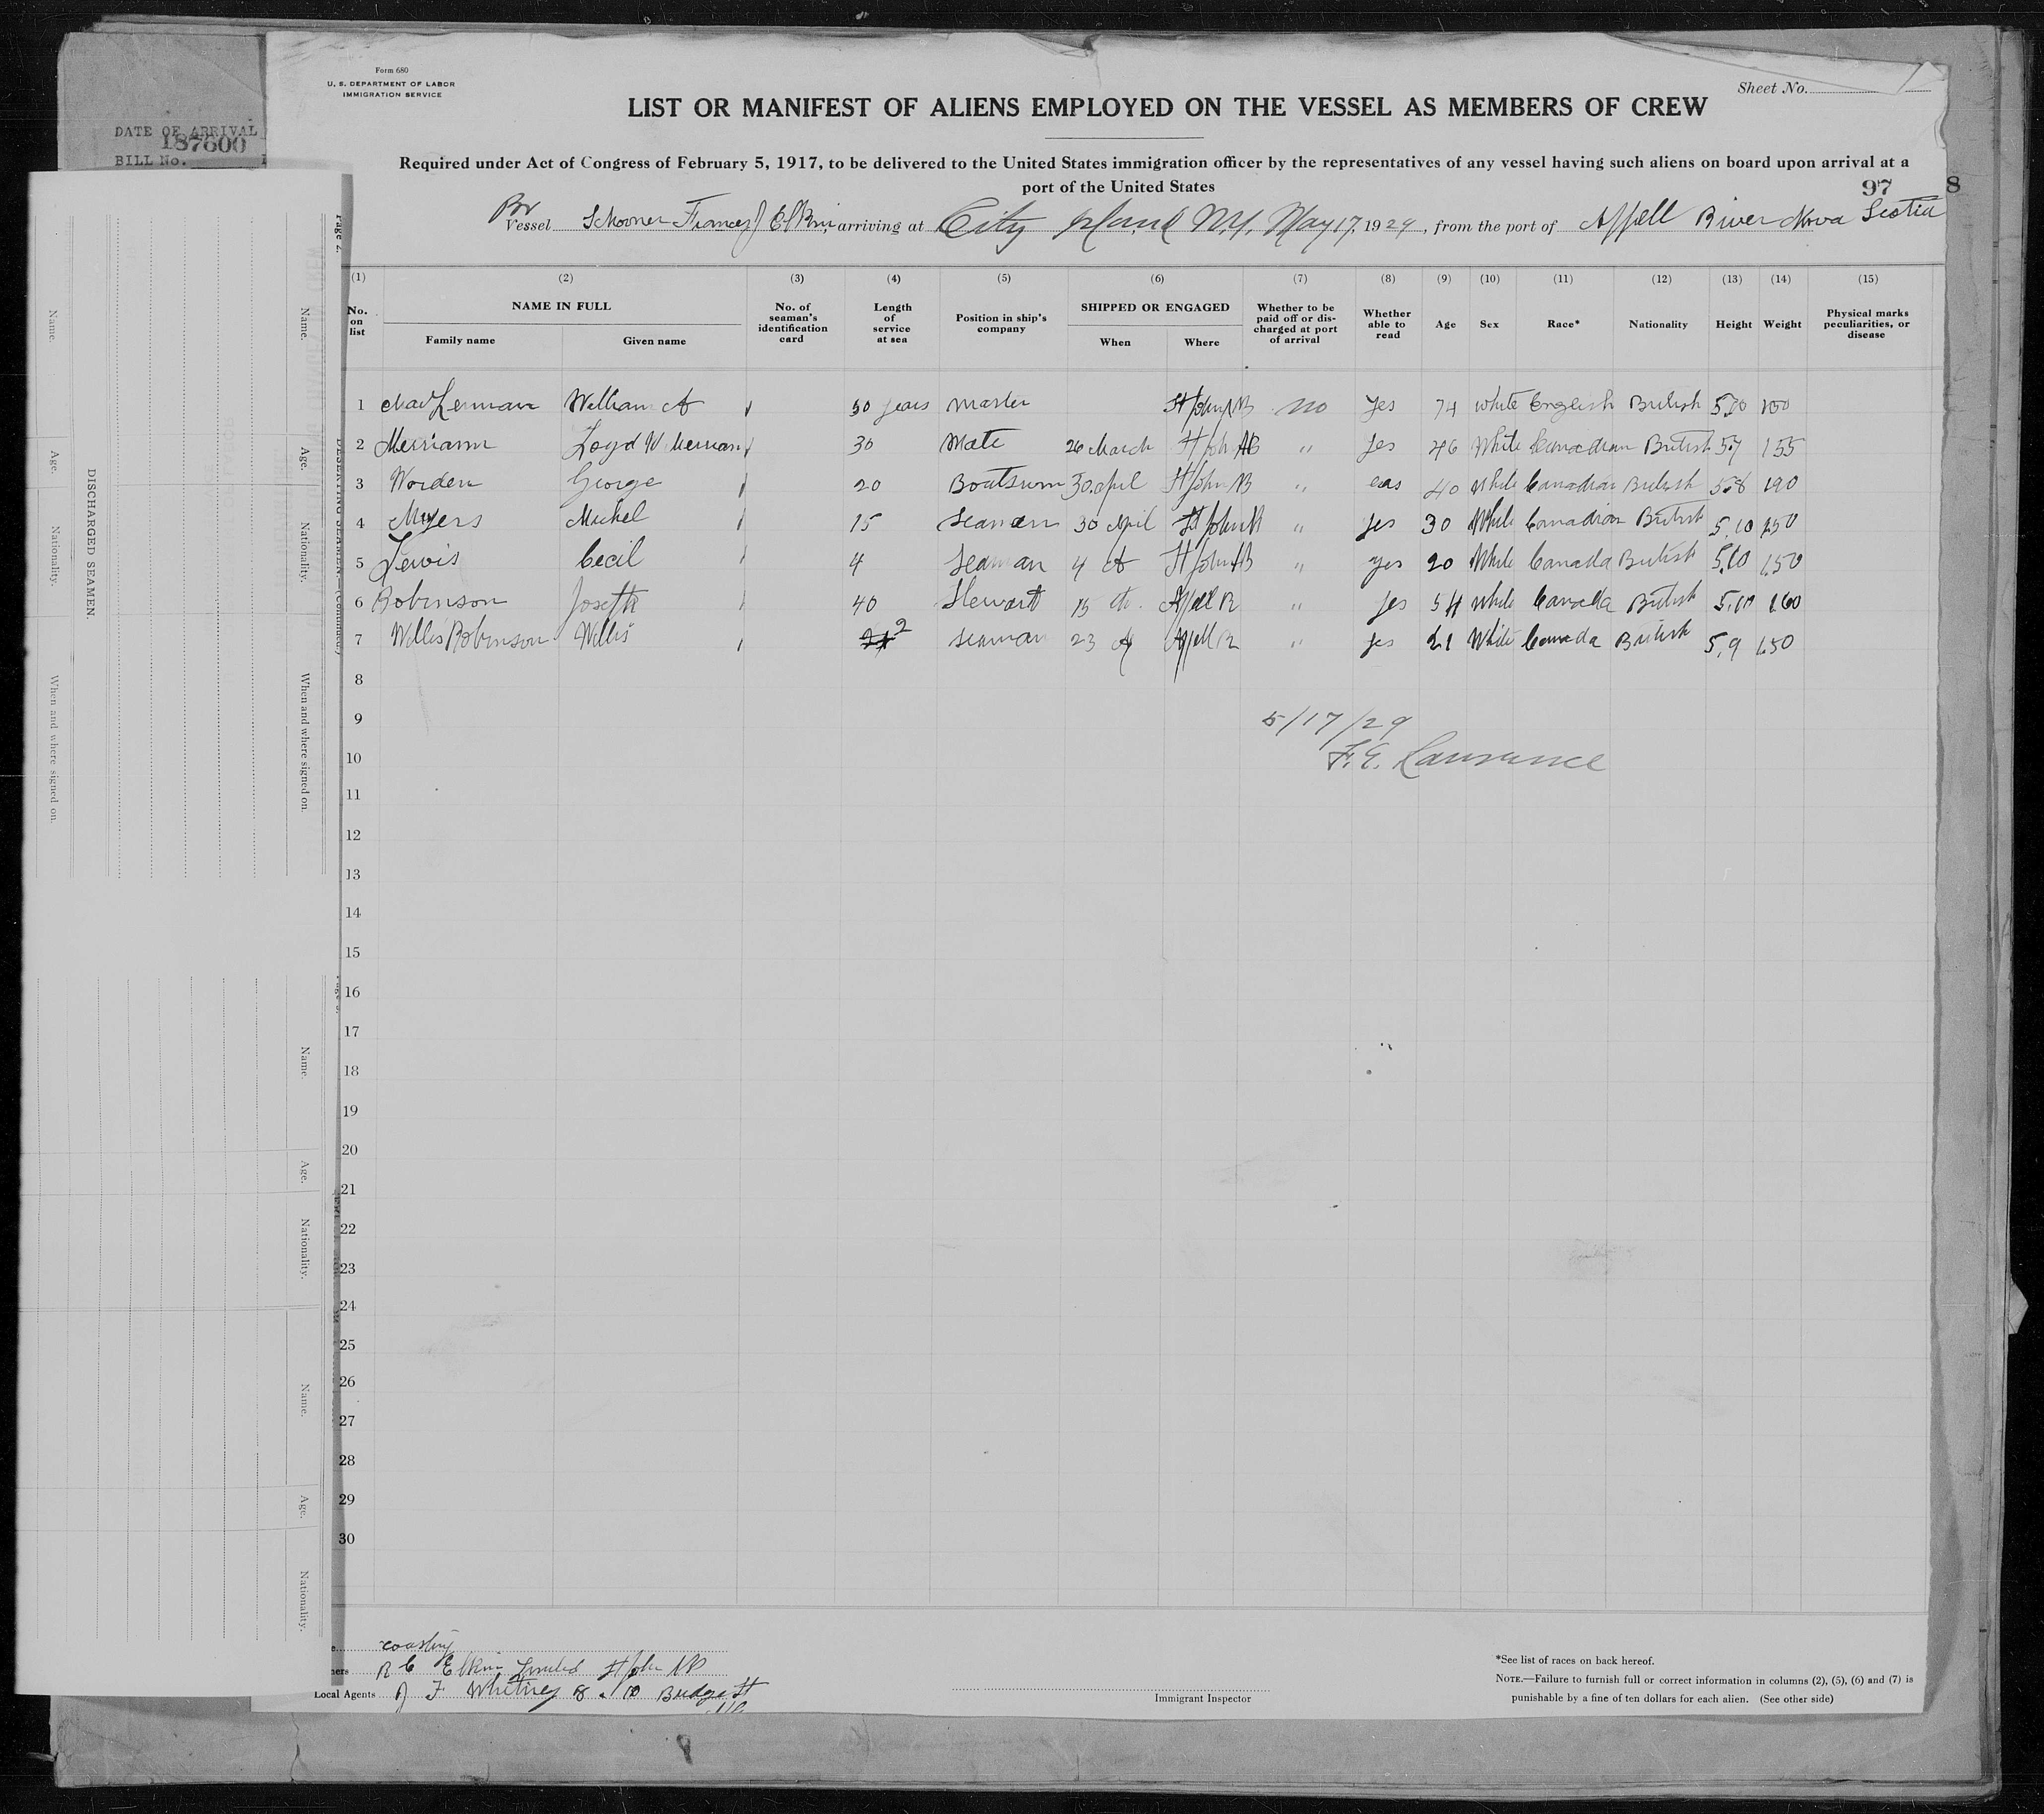 Form 680
U. S. DEPARTMENT OF LABOR
IMMIGRATION SERVICE
Sheet No.
LIST OR MANIFEST OF ALIENS EMPLOYED ON THE VESSEL AS MEMBERS OF CREW
DATE OF ARRIVAL
187600
BILL No.
Required under Act of Congress of February 5, 1917, to be delivered to the United States immigration officer by the representatives of any vessel having such aliens on board upon arrival at a
port of the United States
97 8
Br
Vessel Schooner Frances J Elkin, arriving at City Island N.Y. May 17, 1929, from the port of Appell River Nova Scotia
(1) (2) (3) (4) (5) (6) (7) (8) (9) (10) (11) (12) (13) (14) (15)
No. on list NAME IN FULL No. of seaman's identification card Length of service at sea Position in ship's company SHIPPED OR ENGAGED Whether to be paid off or discharged at port of arrival Whether able to read Age Sex Race* Nationality Height Weight Physical marks peculiarities, or disease
Family name Given name When Where
1 William A 50 years Master St John NB no Yes 74 White English British 5,10
2 Merriam Loyd W Merriam 30 Mate 26 March St John NB " Yes 46 White Canadian British 57 155
3 Worden George 20 Boatsum 30 april St John NB " 40 White Canadian British 5.8 190
4 Myers Michel 15 Seaman 30 April St John N " Yes 30 White Canadian British 5,10 150
5 Lewis Cecil 4 Seaman 4 St John NB " Yes 20 White Canada British 5,10 150
6 Robinson Joseth 40 Stewart 15 Appell R " Yes 54 White Canada British 5,10 160
7 Willis Robinson Willis 2 Seaman 23 Appell R " Yes 21 White Canada British 5,9 150
8
5/17/29
9
F. E. Lawrence
10
11
12
13
14
15
16
17
18
19
20
21
22
23
24
25
26
27
28
29
30
coasting
R C Elkin Limited St John NB
Local Agents J F Whitney 8-10 Bridge St
Immigrant Inspector
*See list of races on back hereof.
NOTE.—Failure to furnish full or correct information in columns (2), (5), (6) and (7) is
punishable by a fine of ten dollars for each alien. (See other side)
DISCHARGED SEAMEN.
Name. Age. Nationality. When and where signed on.
Name. Age. Nationality. When and where signed on.
Name. Age. Nationality.
Name. Age. Nationality.